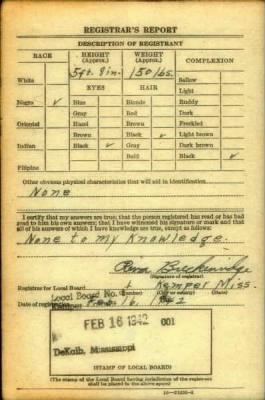 REGISTRAR'S REPORT
DESCRIPTION OF REGISTRANT
RACE HEIGHT (Approx.) WEIGHT (Approx.) COMPLEXION
5 ft. 8 in. 150 lbs.
White Sallow
EYES HAIR Light
Negro ✓ Blue Blonde Ruddy
Gray Red Dark
Oriental Hazel Brown Freckled
Brown Black ✓ Light brown
Indian Black ✓ Gray Dark brown
Bald Black ✓
Filipino
Other obvious physical characteristics that will aid in identification
None
I certify that my answers are true; that the person registered has read or has had
read to him his own answers; that I have witnessed his signature or mark and that
all of his answers of which I have knowledge are true, except as follows:
None to my Knowledge.
Breckenridge
Registrar for Local Board 1 Kemper Miss.
(Number) (City or county) (State)
Date of registration Feb. 16, 1942
Local Board No.
FEB 16 1942 001
DeKalb, Mississippi
(STAMP OF LOCAL BOARD)
(The stamp of the Local Board having jurisdiction of the registrant
shall be placed in the above space)